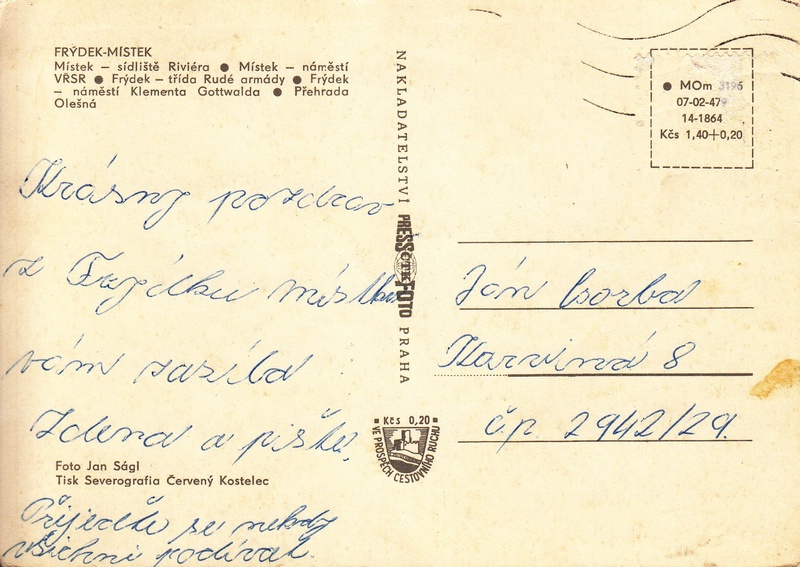 FRÝDEK-MÍSTEK
Místek – sídliště Riviéra ● Místek – náměstí
VŘSR ● Frýdek – třída Rudé armády ● Frýdek
– náměstí Klementa Gottwalda ● Přehrada
Olešná
Krásny pozdrav
z Frýdku místku
vám zasíla
Zdena a pišta,
Foto Jan Ságl
Tisk Severografia Červený Kostelec
Přijeďte se nekdy
všichni podívat.
NAKLADATELSTVÍ PRESSFOTO PRAHA
ČTK
Kčs 0,20
VE PROSPĚCH CESTOVNÍHO RUCHU
● MOm 3196
07-02-479
14-1864
Kčs 1,40+0,20
Ján Csorba
Karviná 8
č.p. 2942/29.